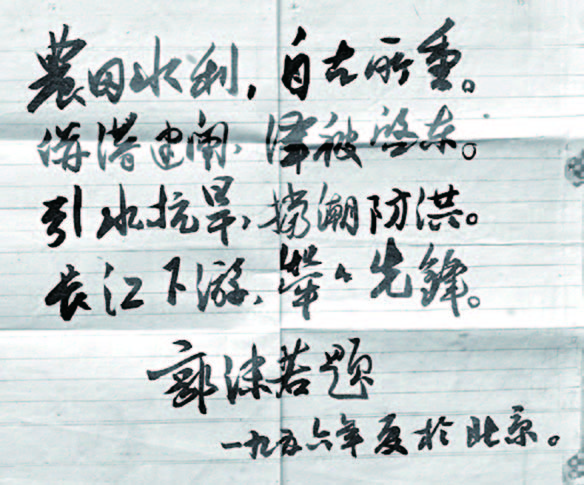 農田水利,自古所重。
併港建闸,澤被啓东。
引水抗旱,擋潮防洪。
长江下游,犖々先鋒。
郭沫若題
一九五六年夏於北京。